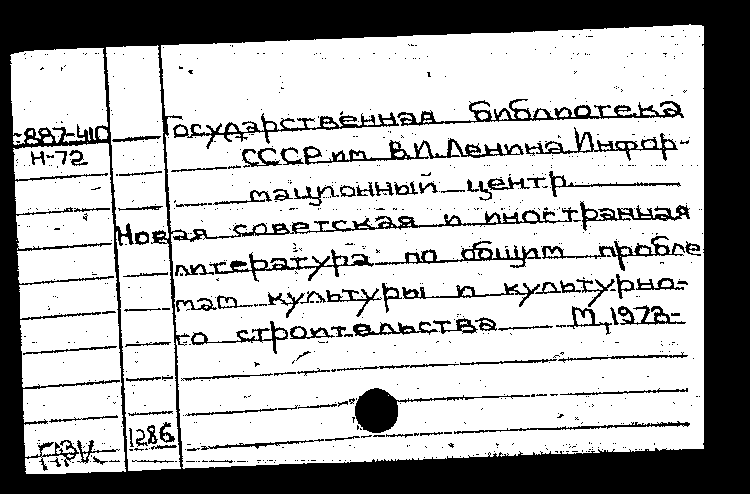 Н-72
Государственная библиотека
СССР им. В.И.Ленина. Инфор-
мационный центр.
Новая советская и иностранная
литература по общим пробле
мам культуры и культурно-
го строительства М,1973-
1286